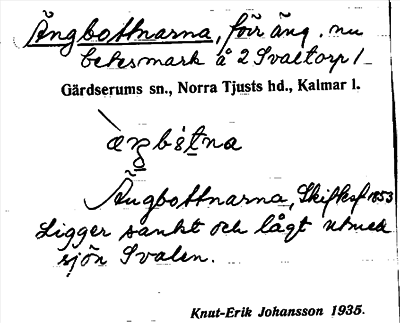 Ängbottnarna, förr äng. nu
betesmark å 2 Svaltorp 1
Gärdserums sn., Norra Tjusts hd., Kalmar l.
Ängbottnarna, Skifteskf 1853
Ligger sankt och lågt utmed
sjön Svalen.
Knut-Erik Johansson 1935.